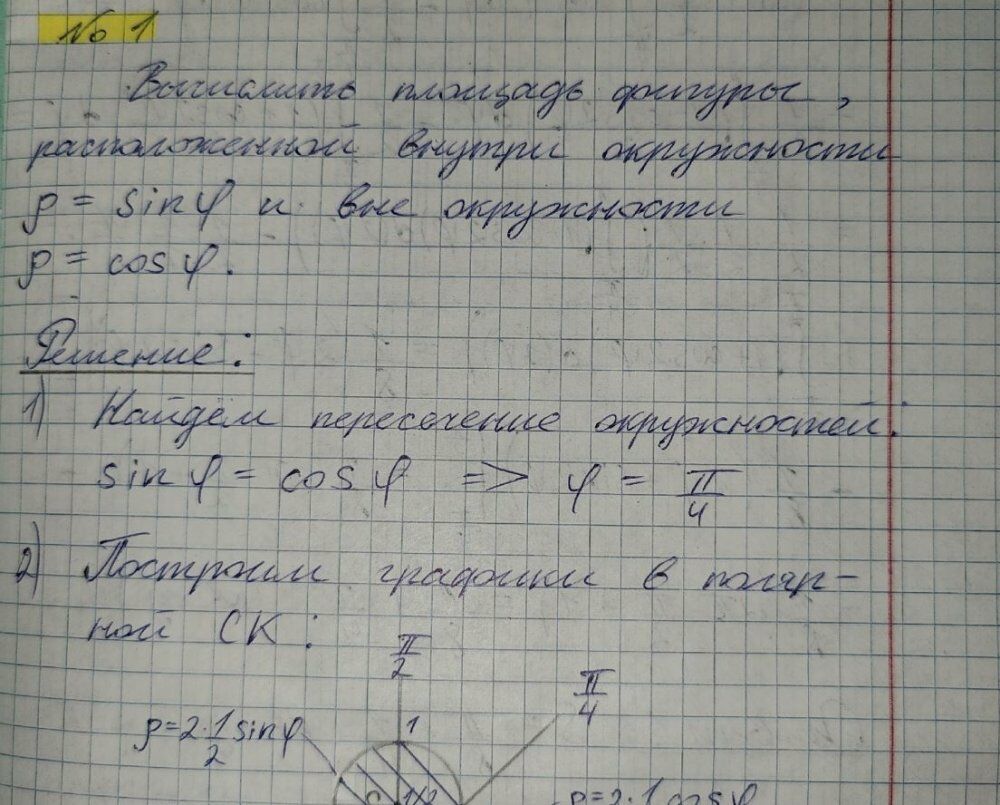 № 1
Вычислить площадь фигуры,
расположенной внутри окружности
ρ = sin φ и вне окружности
ρ = cos φ.
Решение:
1) Найдём пересечение окружностей:
sin φ = cos φ => φ = π/4
2) Построим графики в поляр-
ной СК:
π/2
π/4
ρ=2·1/2 sin φ
1
ρ=2·1 cos φ